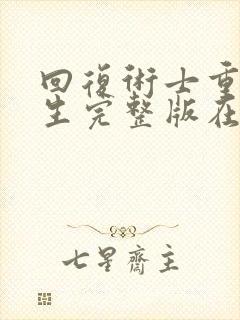 回復術士重
生完整版在
七星齋主